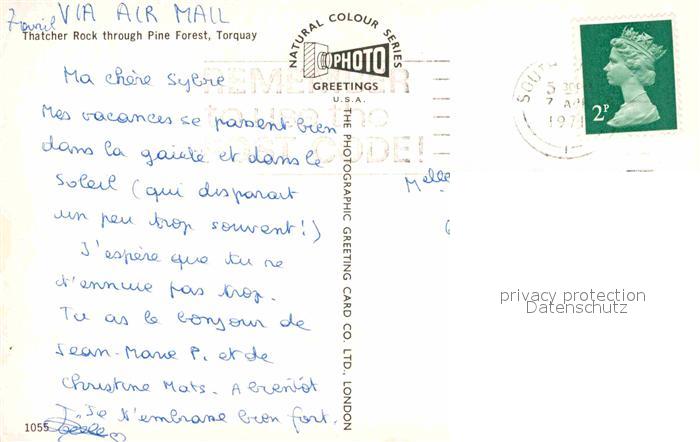 7 avril VIA AIR MAIL
Thatcher Rock through Pine Forest, Torquay
Ma chère Sybre
Mes vacances se passent bien
dans la gaieté et dans le
soleil (qui disparait
un peu trop souvent!)
J'espère que tu ne
t'ennuie pas trop.
Tu as le bonjour de
Jean-Marie P. et de
Christine Mats. A bientôt
Je t'embrasse bien fort.
1055
NATURAL COLOUR SERIES
PHOTO
GREETINGS
U.S.A.
THE PHOTOGRAPHIC GREETING CARD CO. LTD., LONDON
REMEMBER
to use the
POST CODE!
SOUTH
7 AP
197
2P
Melle
privacy protection
Datenschutz